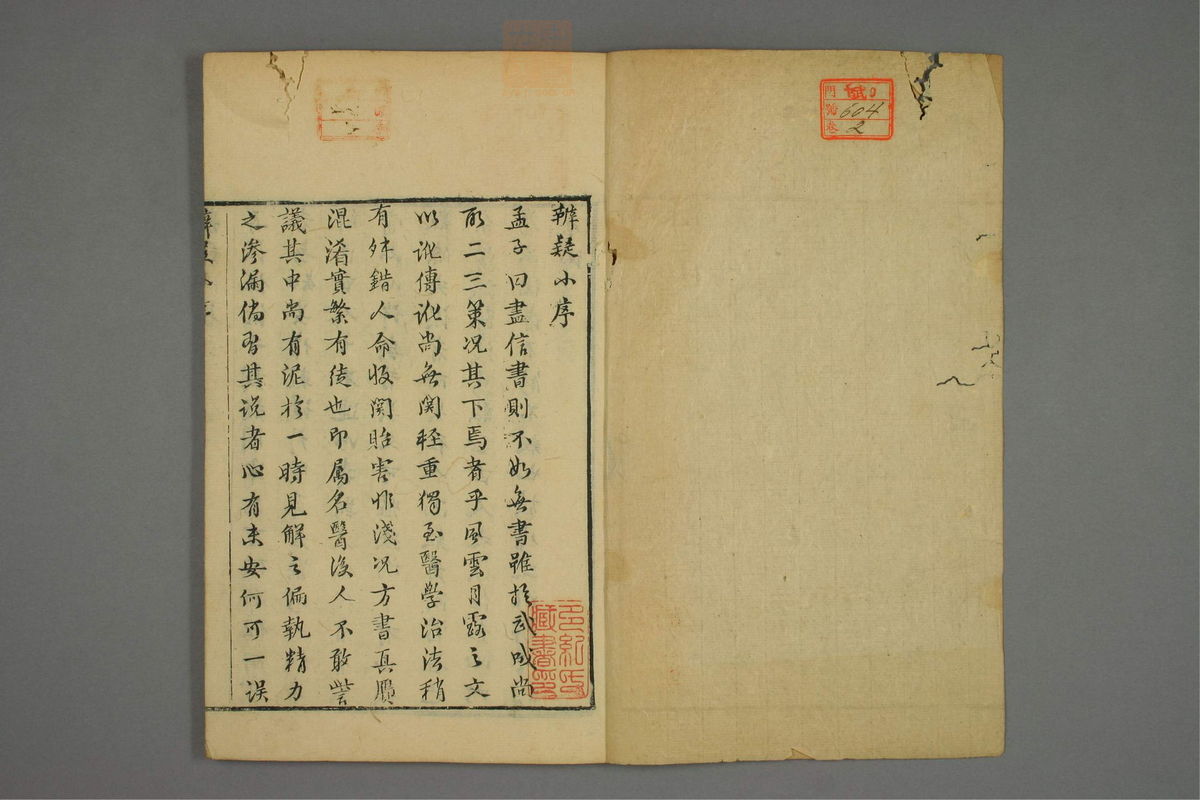 門 賦
號 604
卷 2
辨疑小序
孟子曰盡信書則不如無書雖於武成尚
取二三策况其下焉者乎風雲月露之文
以訛傳訛尚無関輕重獨至醫學治法稍
有舛錯人命攸関貽害非淺况方書真贋
混淆實繁有徒也即属名醫後人不敢訾
議其中尚有泥於一時見解之偏執精力
之滲漏倘習其说者心有未安何可一误
藏書印